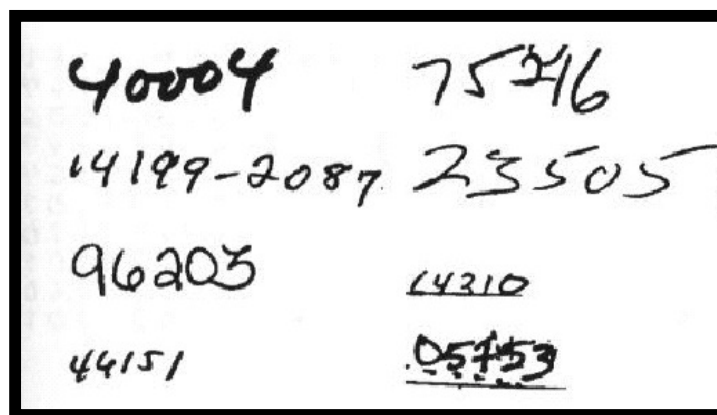 40004 75216
14199-2087 23505
96203 14210
44151 05753